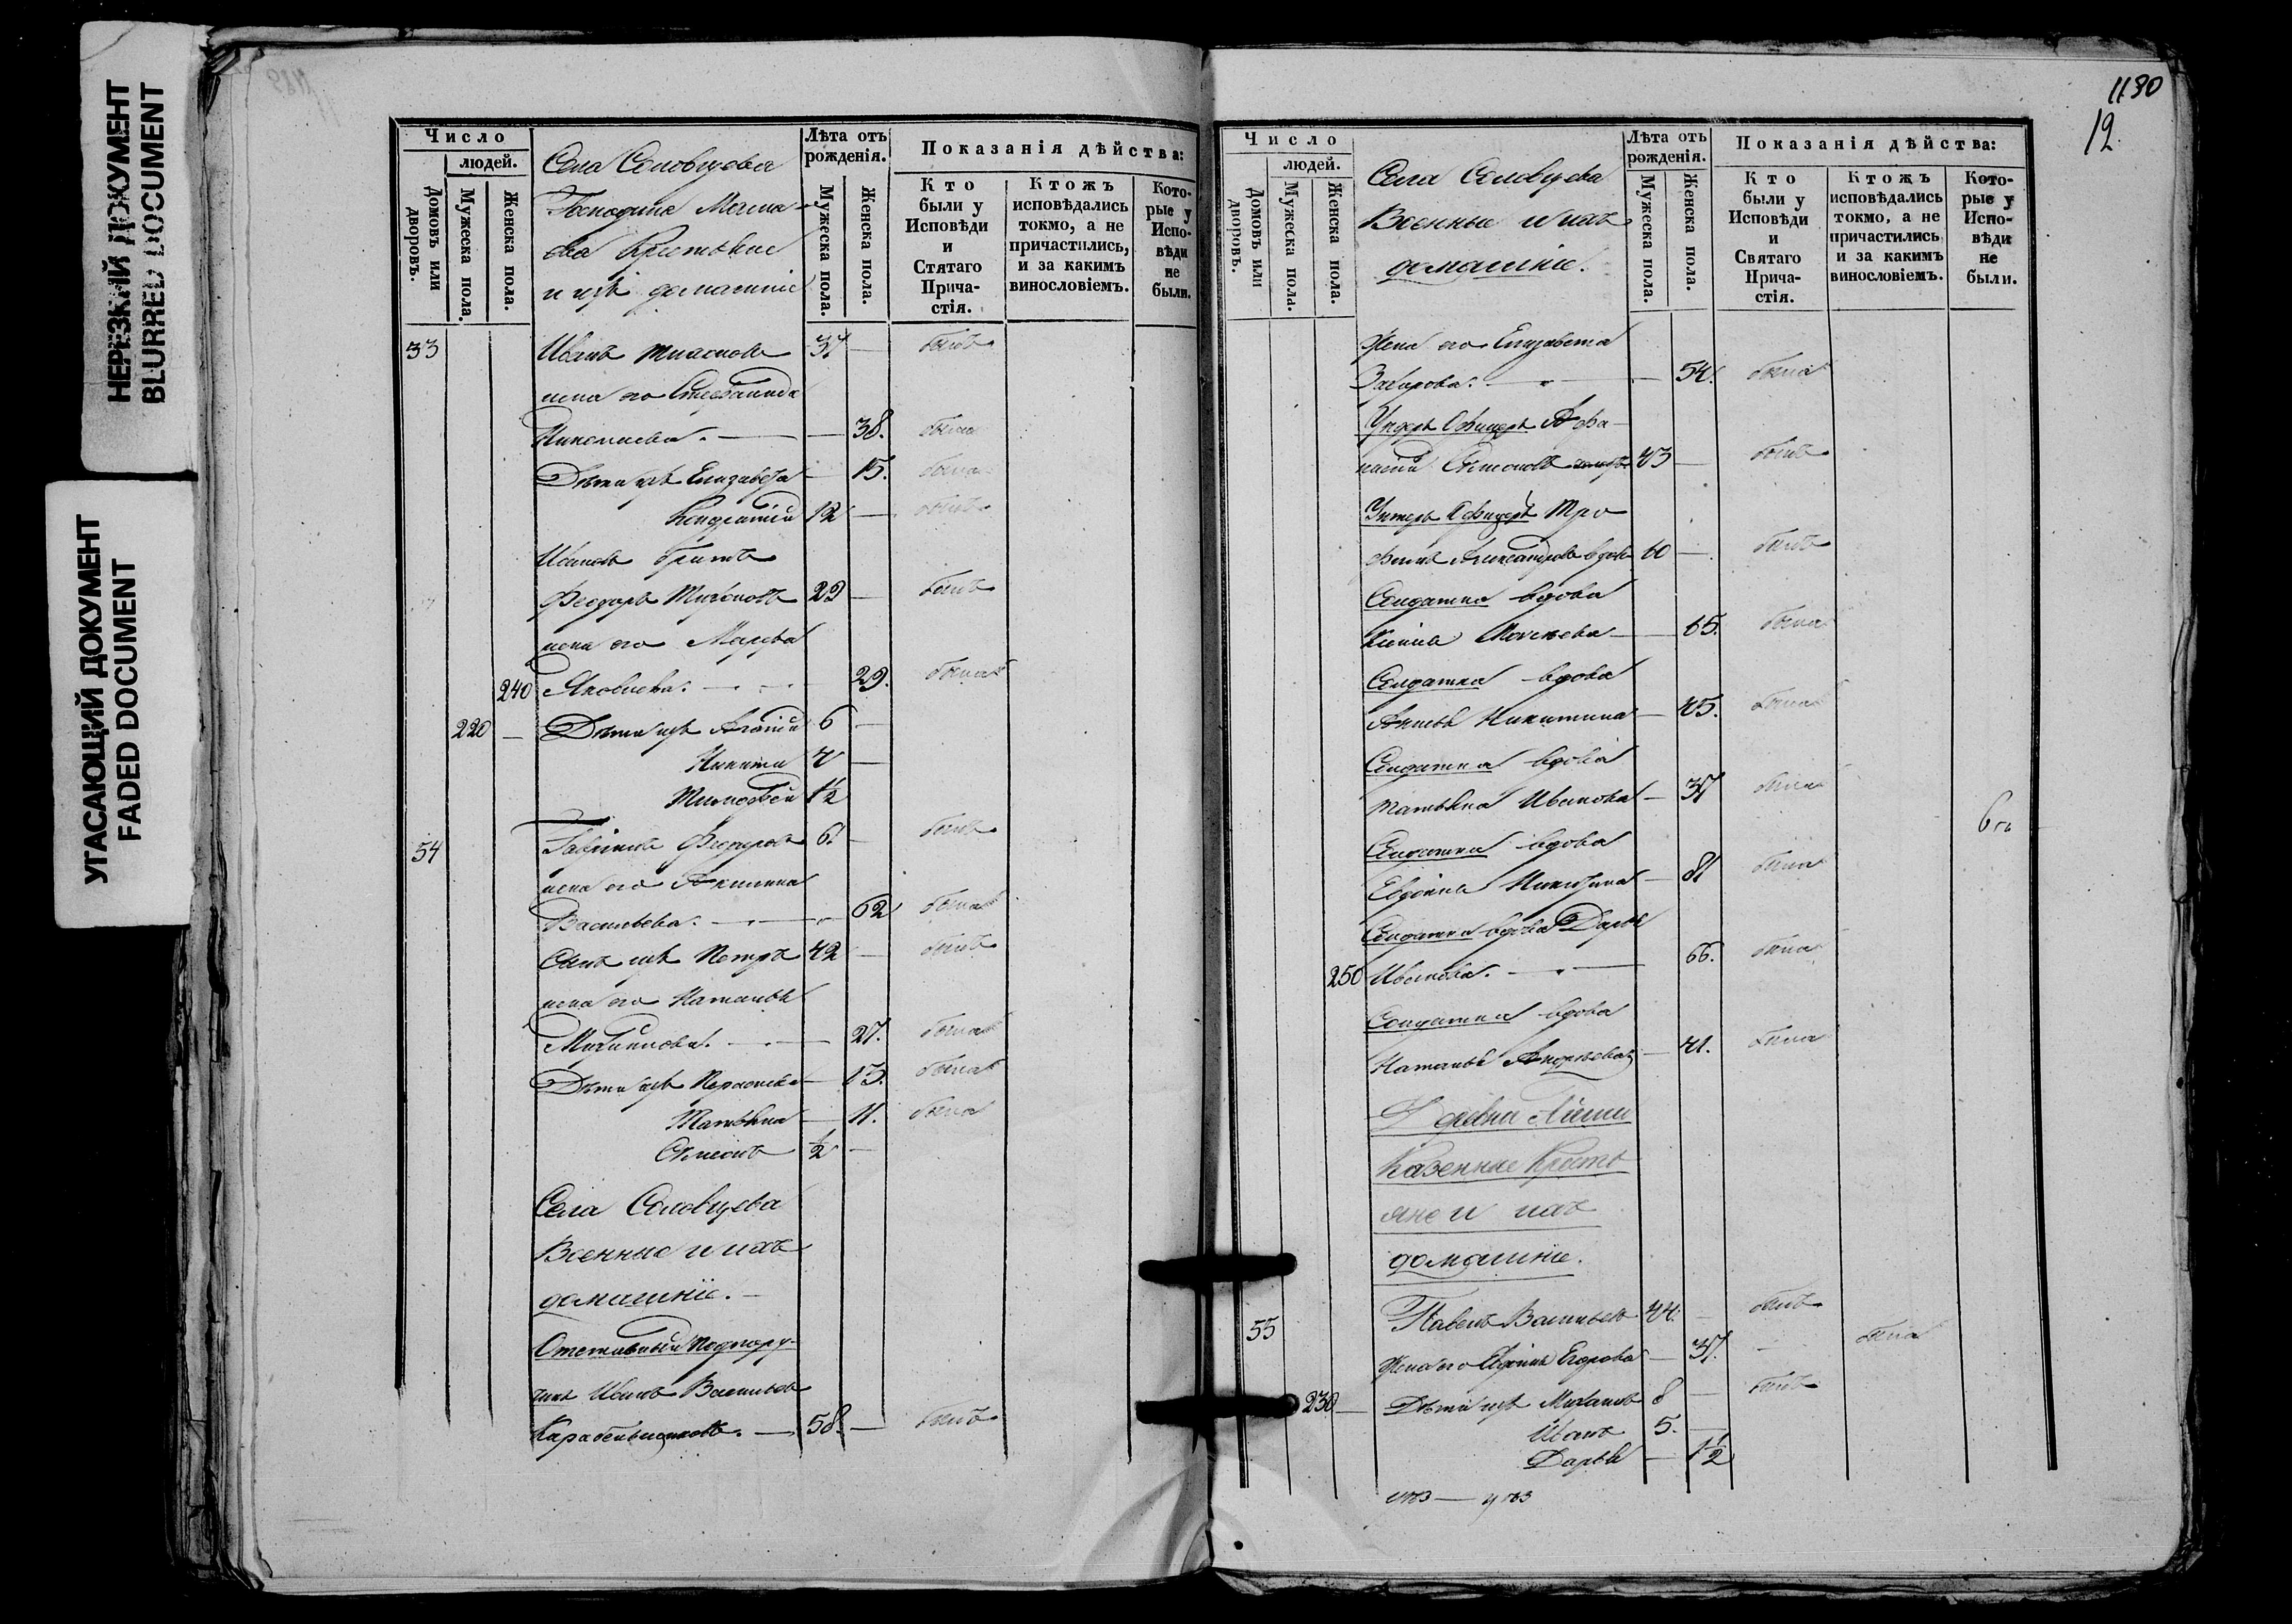 НЕРЕЗКИЙ ДОКУМЕНТ
BLURRED DOCUMENT
УГАСАЮЩИЙ ДОКУМЕНТ
FADED DOCUMENT
Число
людей.
Домовъ или дворовъ.
Мужеска пола.
Женска пола.
Села Соловцева
Господина
Крестьяне
и ихъ домашніе
Лѣта отъ рожденія.
Мужеска пола.
Женска пола.
Показанія дѣйства:
Кто были у Исповѣди и Стятаго Прича-стія.
Ктожъ исповѣдались токмо, а не причастились, и за какимъ винословіемъ.
Кото-рые у Испо-вѣди не были.
33 Иванъ 37 — былъ
жена его Степанида
38. была
Дѣти ихъ Елизавета — 15. была
Кондратій 12 — былъ
Ивановъ братъ
Феодоръ Тихоновъ 29 — былъ
жена его Марѳа
240 Яковлева. — 29. была
220 — Дѣти ихъ 6 —
Никита 4 —
Тимофей 1½
54 Гавріилъ Федоровъ 61 — былъ
жена его Акилина
Васильева. — 62 была
Сынъ ихъ Петръ 42 — былъ
жена его Наталья
27. была
Дѣти ихъ — 13. была
Татьяна — 11. была
Симеонъ ½ —
Села Соловцева
Военные и ихъ
домашніе. —
Отставный Подпору-
чикъ Иванъ Васильевъ
58. — былъ
1130
12.
Число
людей.
Домовъ или дворовъ.
Мужеска пола.
Женска пола.
Села Соловцева
Военные и ихъ
домашніе.
Лѣта отъ рожденія.
Мужеска пола.
Женска пола.
Показанія дѣйства:
Кто были у Исповѣди и Святаго Прича-стія.
Ктожъ исповѣдались токмо, а не причастились и за какимъ винословіемъ.
Кото-рые у Испо-вѣди не были.
Жена его Елизавета
— 54. была
Ундеръ Офицеръ Афа-
насій 43 — былъ
Унтеръ Офицеръ Тро
фимъ Александровъ вдов 60 — былъ
Солдатка вдова
Ксенія Моисеева — 65. была
Солдатка вдова
Никитина — 45. была
Солдатка вдова
Татьяна Иванова — 37 была
Солдатка вдова
Евдокія Никитина — 81 была
Солдатка вдова Дарья
250 Иванова. — 66. была
Солдатка вдова
Наталья Андреева — 41. была
Казенные Кресть
яне и ихъ
домашніе.
55 Павелъ Васильевъ 44. — былъ
Жена его Евдокія Егорова — 37. — была
230 — Дѣти ихъ Михаилъ 8 — былъ
Иванъ 5. —
Дарья — 1½